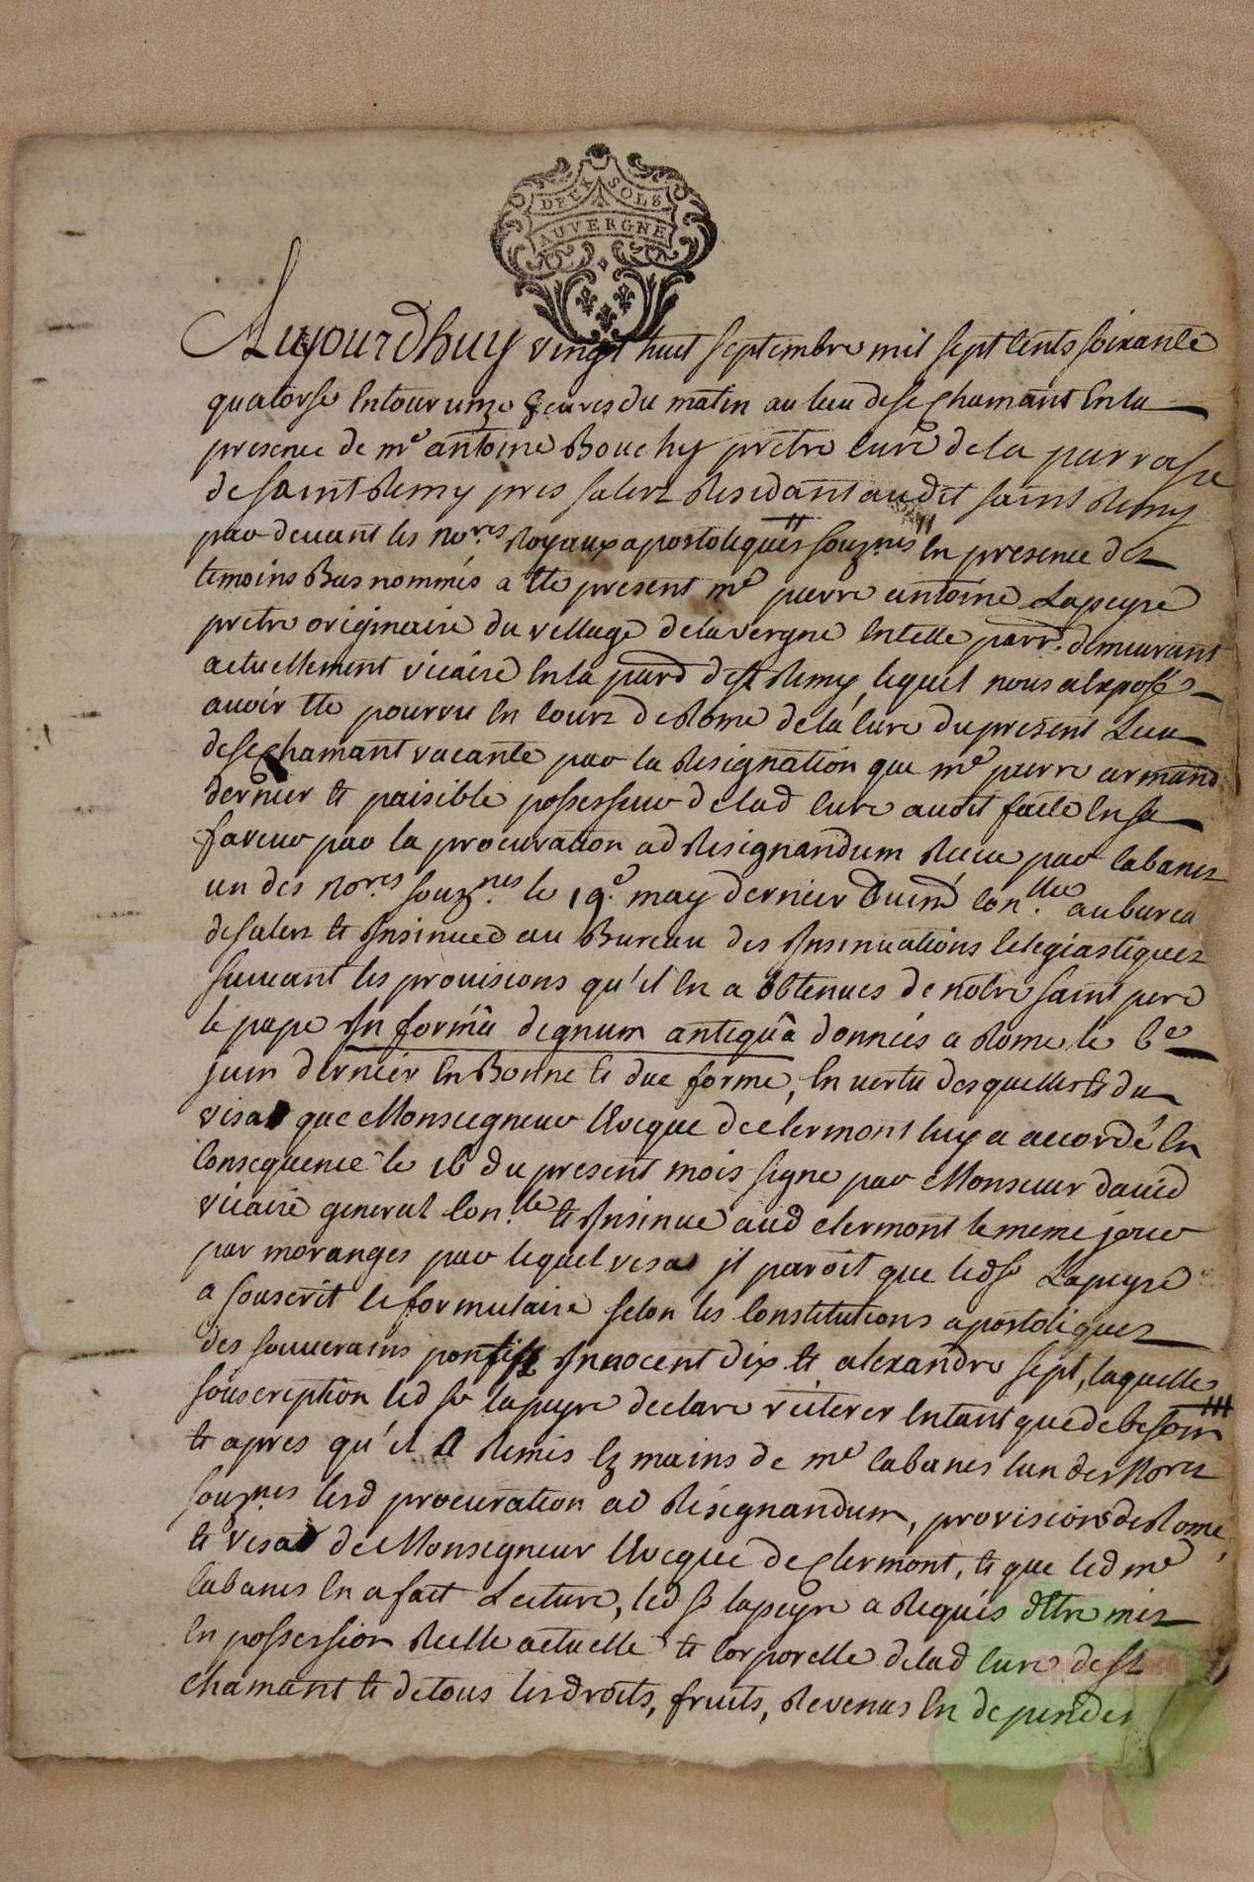 DEUX SOLS
AUVERGNE
Aujourdhuy vingt huit septembre mil sept cents soixante
quatorse entour unze heures du matin au lieu de st chamant en la
presence de me antoine Bouchy prêtre curé de la parroise
de saint Remy pres salerz Residant audit saint Remy
par devant les nores Royaux apostoliques souznes en presence des
temoins Bas nommés a eté present me pierre antoine Lapeyre
pretre originaire du village de lavergne en cette parr. demeurant
actuellement vicaire en la parr de st Remy, lequel nous a exposé
avoir eté pourvu en cour de Rome de la cure du present Lieu
de st chamant vacante par la Resignation que me pierre armand
dernier et paisible possesseur de lad cure auoit faite en sa
faveur par la procuration ad Resignandum Recue par cabanes
un des nores souznes le 19e may dernier duemt conlle au burea
de salerz et Insinuee au Bureau des Insinuations eclegiastiques
suivant les provisions qu'il en a obtenues de nôtre saint pere
le pape In formâ dignum antiquâ données a Rome le 6e
juin dernier en Bonne et due forme, en vertu desquelles et du
visa que Monseigneur l'Evêque de clermont luy a accordé en
consequence le 16 du present mois signe par Monsieur david
vicaire general conlle et Insinue aud clermont le meme jour
par moranges par lequel visa il paroit que led sr Lapeyre
a souscrit le formulaire selon les constitutions apostoliques
des souverains pontifes Innocent dix et alexandre sept, laquelle
souscription led sr lapeyre declare reiterer entant que de besoin
et apres qu'il a Remis ez mains de me cabanes l'un des Nores
souznes lesd procuration ad Resignandum, provisions de Rome,
et visa de Monseigneur l'Evêque de clermont, et que led me
Cabanes en a fait Lecture, led sr lapeyre a Requis d'etre mis
en possession Réelle actuelle et corporelle de lad cure de st
chamant et de tous les droits, fruits, Revenus en dependes